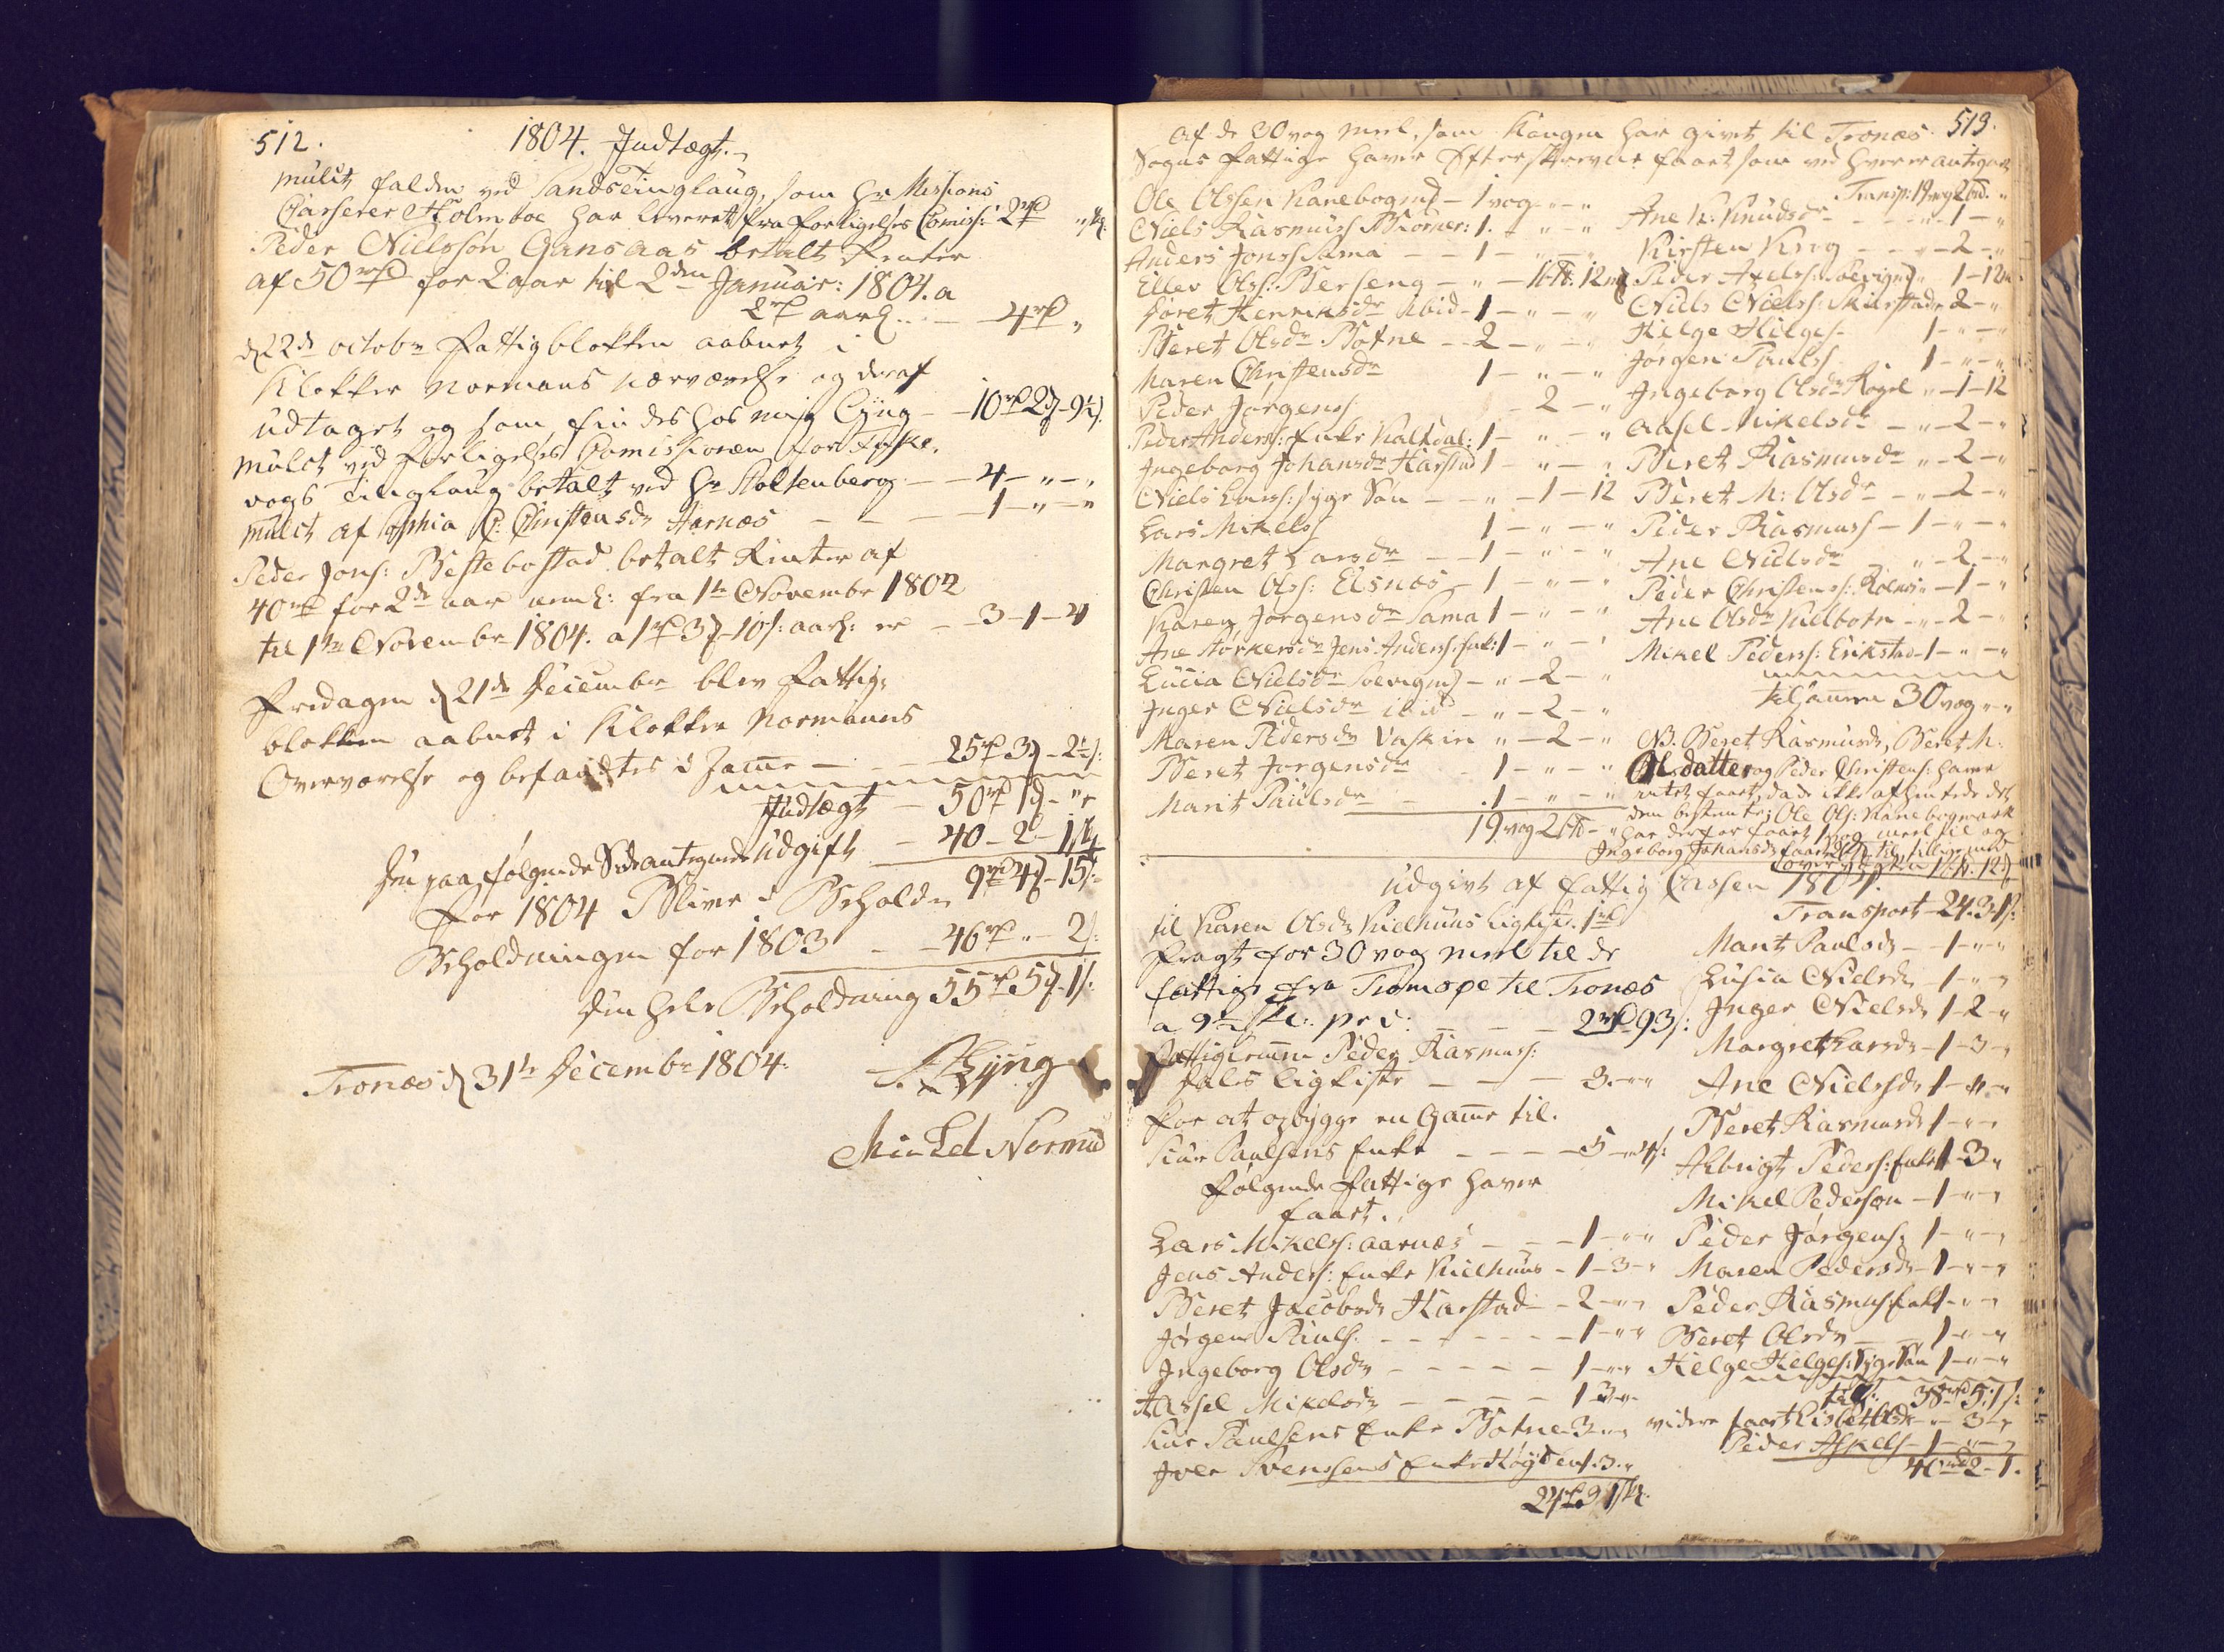 512.
1804. Indtægt.
Mulct falden ved Sands Tinglaug, som Hr Missions
Casserer Holmboe har leveret fra Forligelses Comiss: 2rd „ ß.
Peder Nielssøn Gansaas betalt Renter
af 50 rd for 2 aar til 2den Januar: 1804. a
2rd aarl. — 4rd „
d 22d octobr Fattigblokken aabnet i
Klokker Normans nærværelse og deraf
udtaget og som findes hos mig Lÿng — 10rd 2 – 9½ß.
Mulct ved Forligelses Comissionen for
vogs Tinglaug betalt ved Hr Stoltenberg — 4 – „ – „
Mulct af Sophia C: Christensdr Aarnæs — 1 – „ – „
Peder Jons: Bestebostad betalt Renter af
40rd for 2de aar neml: fra 1te Novembr 1802
til 1te Novembr 1804. a 1rd 3 – 10ß: aarl: er — 3 – 1 – 4
Fredagen d 21de Decembr blev Fattig-
blokken aabnet i Klokker Normanns
Overværelse og befandtes i Samme — 25rd 3 – 2½ß:
Indtægt — 50rd 1 – „
Den paa følgende Side antegnede Udgift — 40 – 2 – 1ß
For 1804 Bliver i Beholdn 9rd 4 – 15ß.
Beholdningen for 1803 — 46rd „ – 2ß:
Den hele Beholdning 55rd 5 – 1ß:
Tronæs d 31te Decembr 1804.
Lÿng
Mickel Normand
513.
Af de 30 vog meel, som Kongen har givet til Tronæs
Sogns Fattige haver Efterskrevne faaet som ved hver er antegnet
Ole Olssen Kanebogmd – 1 vog – „ – „
Niels Rasmuss Biørner: 1. – „ – „
Anders Jonss Sama — 1 – „ – „
Eller Olss: Berseng – „ – 1 – 12
Doret Henriksdr ibid – 1 – „ – „
Beret Olsdr Botne — 2 – „ – „
Maren Christensdr 1 – „ – „
Peder Jørgenss – 2 – „
Peder Anderss: Enke Kalkdal: 1 – „ – „
Ingeborg Johansdr Harstad 1 – „ – „
Niels Larss: syge Søn — „ – 1 – 12
Lars Mikelss 1 – „ – „
Margret Larsdr — 1 – „ – „
Christen Olss: Elsnæs – 1 – „ – „
Karen Jørgensdr Sama 1 – „ – „
Ane Størkersdr Jens Anderss: Enke: 1 – „ – „
Lucia Nielsdr – „ – 2 – „
Inger Nielsdr ibid – „ – 2 – „
Maren Pedersdr Vaskin „ – 2 – „
Beret Jørgensdr 1 – „ – „
Marit Paulsdr — 1 – „ – „
19 vog 2 – „
Transp: 19 vog 2
Ane K: Knudsdr — „ – 1 – „
Kirsten Krog — „ – 2 – „
Peder Axelss: „ 1 – 12
Niels Nielss: 2 – „
Helge Helges 1 – „ – „
Jørgen Paulss 1 – „ – „
Ingeborg Olsdr Rogel „ – 1 – 12
Aasel Mikelsdr — „ – 2 – „
Beret Rasmusdr „ – 2 – „
Beret M: Olsdr – „ – 2 – „
Peder Rasmuss – 1 – „ – „
Ane Nielsdr „ – 2 – „
Peder Christenss: „ – 1 – „
Ane Olsdr Kielbotn – „ – 2 – „
Mikel Pederss: Erikstad – 1 – „ – „
tilsamen 30 vog „ – „
NB. Beret Rasmusdr, Beret M:
Olsdatter og Peder Christens: have
intet faaet, da de ikke afhentede det
dem bestemte; Ole Ols: Kanebogmark
har derfor faaet 1 vog meel til og
Ingeborg Johansdr faaet
Udgivt af Fattig Cassen 1804.
til Karen Olsdr Kielhuus Ligkiste. 1rd
Fragt for 30 vog meel til de
fattige fra Tromsøe til Tronæs
a 9½ ß: pr v: — 2rd 93ß:
Fattiglemm Peder Rasmuss:
Fals ligkiste — 3. – „
For at opbygge en Game til
Paulsens Enke — 5 – „ 4ß:
Følgende Fattige haver
faaet.
Lars Mikelss: Aarnæs — 1 – „ „
Jens Anderss: Enke Kielhuus – 1 – 3 – „
Beret Jacobsdr Harstad — 2 – „ „
Jørgen Pauls. — 1 – „ „
Ingeborg Olsdr — 1 – „ „
Aassel Mikelsdr — 1 3 „
Paulsens Enke Botne 3 – „
Iver Svenssens Enke 1. 3. „
24rd 3 1ß.
Transport – 24. 3. 1ß:
Marit Paulsdr – 1 – „ „
Lusia Nielsdr – 1 – „ „
Inger Nielsdr 1 – 2 – „
Margret Larsdr – 1 – 3 – „
Ane Nielsdr 1 – „ – „
Beret Rasmusdr 1 – „ – „
Albrigt Peders: Enke 1 – 3 „
Mikel Pedersøn – 1 – „ „
Peder Jørgens: 1 – „ – „
Maren Pedersdr – 1 – „ – „
Peder Rasmuss Enke 1 – „ – „
Beret Olsdr — 1 – „ – „
Helge Helges: syge Søn 1 – „ – „
38rd 5. 1ß:
videre faaet Lisbet Olsdr – „ 3 – „
Peder Askels – 1 – „ – „
40rd 2 – 1.